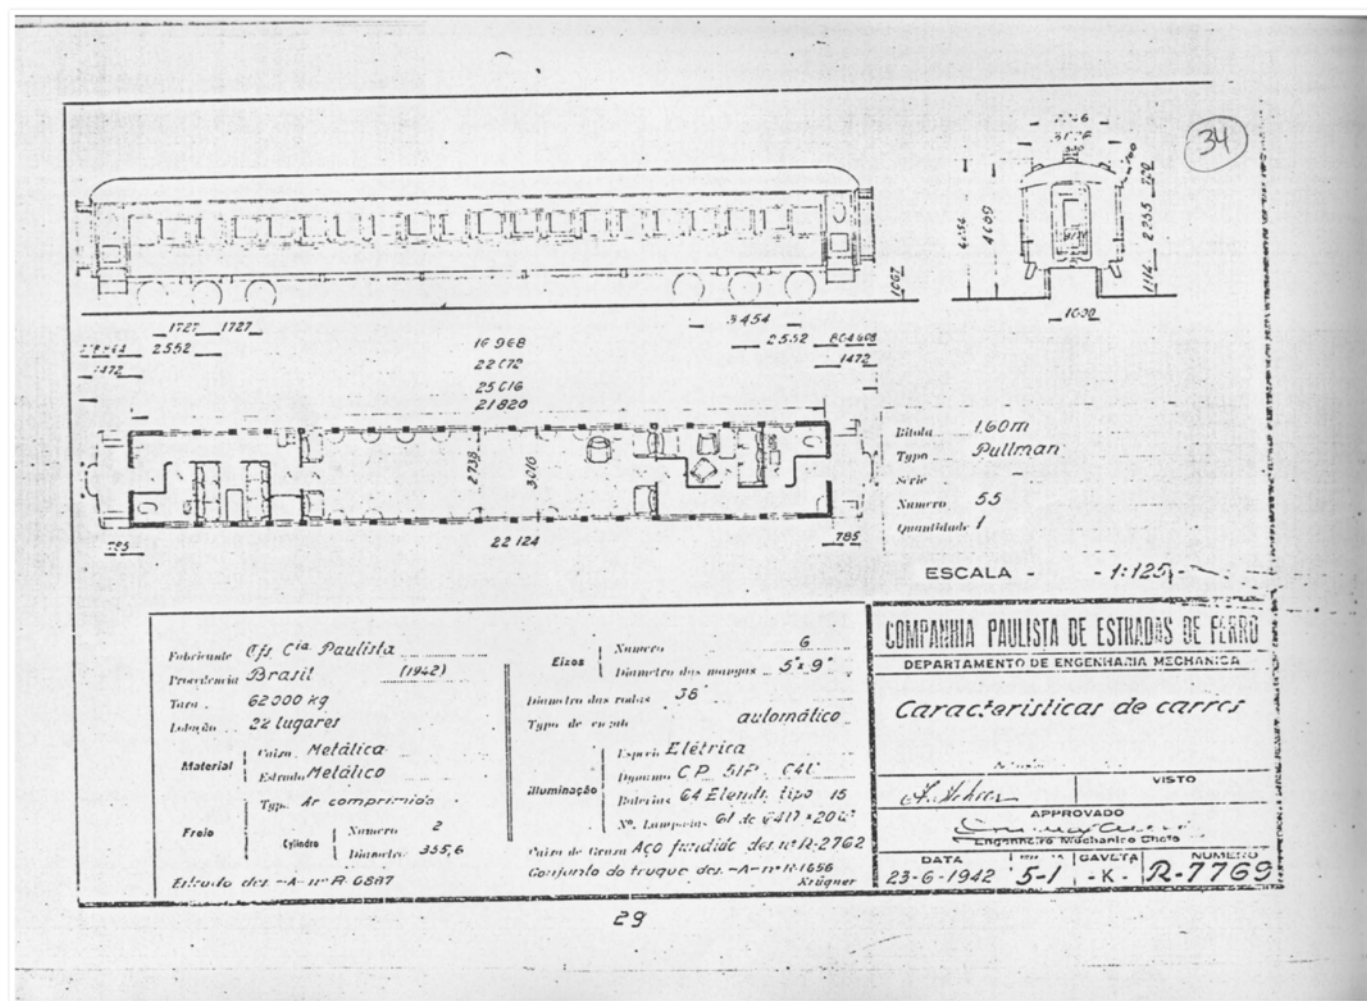 34
4609
2255
1114
1007
1600
1727 1727
3454
2552
16 968
2552
1472
22 672
1472
25 616
21 820
2738
3016
785
22 124
785
Bitola 1,60m
Typo Pullman
Serie
Numero 55
Quantidade 1
ESCALA 1:125
Fabricante Cia Paulista
Procedencia Brasil (1942)
Tara 62000 kg
Lotação 22 lugares
Material
Caixa Metálica
Estrado Metálico
Freio
Typo Ar comprimido
Cylindro
Numero 2
Diametro 355,6
Estrado des. -A- nº R-6887
Eixos
Numero 6
Diametro das mangas 5" x 9"
Diametro das rodas 38"
Typo de engate automático
Illuminação
Especie Elétrica
Dynamo C P
Baterias 64 Elemt. tipo 15
Nº. Lampadas 61 de
Caixa de Graxa Aço fundido des. nº R-2762
Conjunto do truque des. -A- nº R-1656
Krügner
COMPANHIA PAULISTA DE ESTRADAS DE FERRO
DEPARTAMENTO DE ENGENHARIA MECHANICA
Caracteristicas de carros
VISTO
APPROVADO
Engenheiro Mechanico Chefe
DATA GAVETA NUMERO
23-6-1942 5-1 -K- R-7769
29